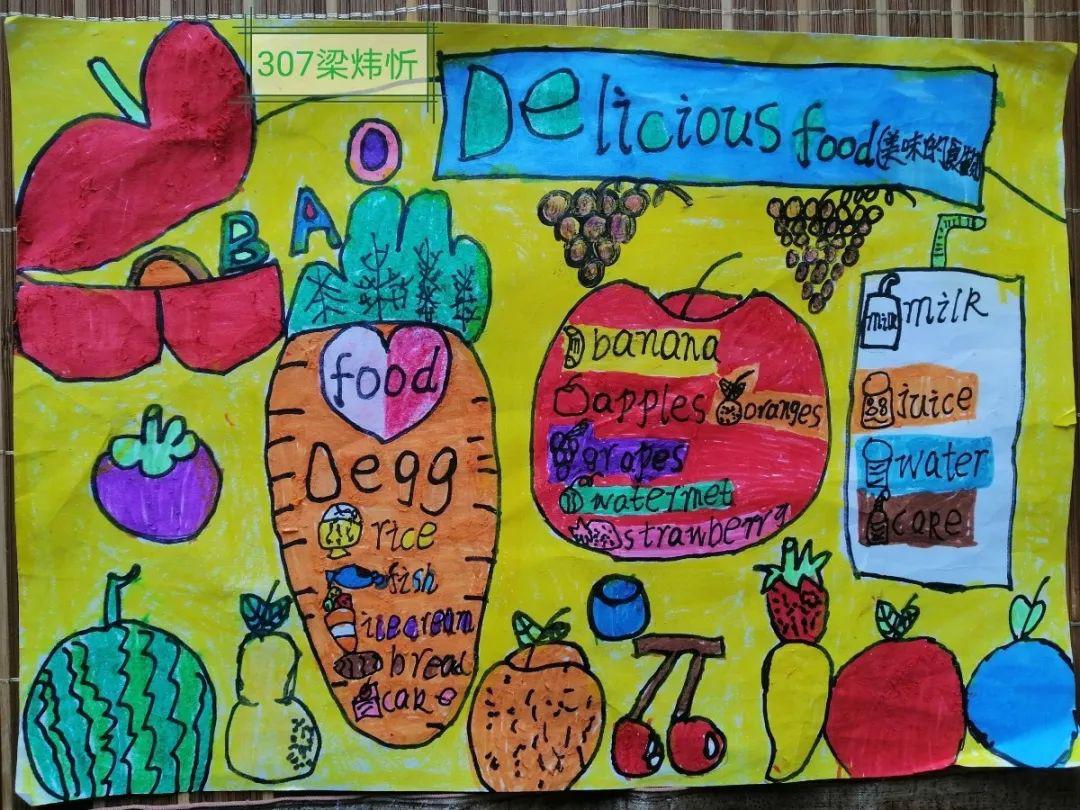 307梁炜忻
Delicious food(美味的食物)
O
B A
food
Degg
rice
fish
icecream
bread
cake
banana
apples oranges
grapes
watermet
strawberry
milk milk
juice
water
core